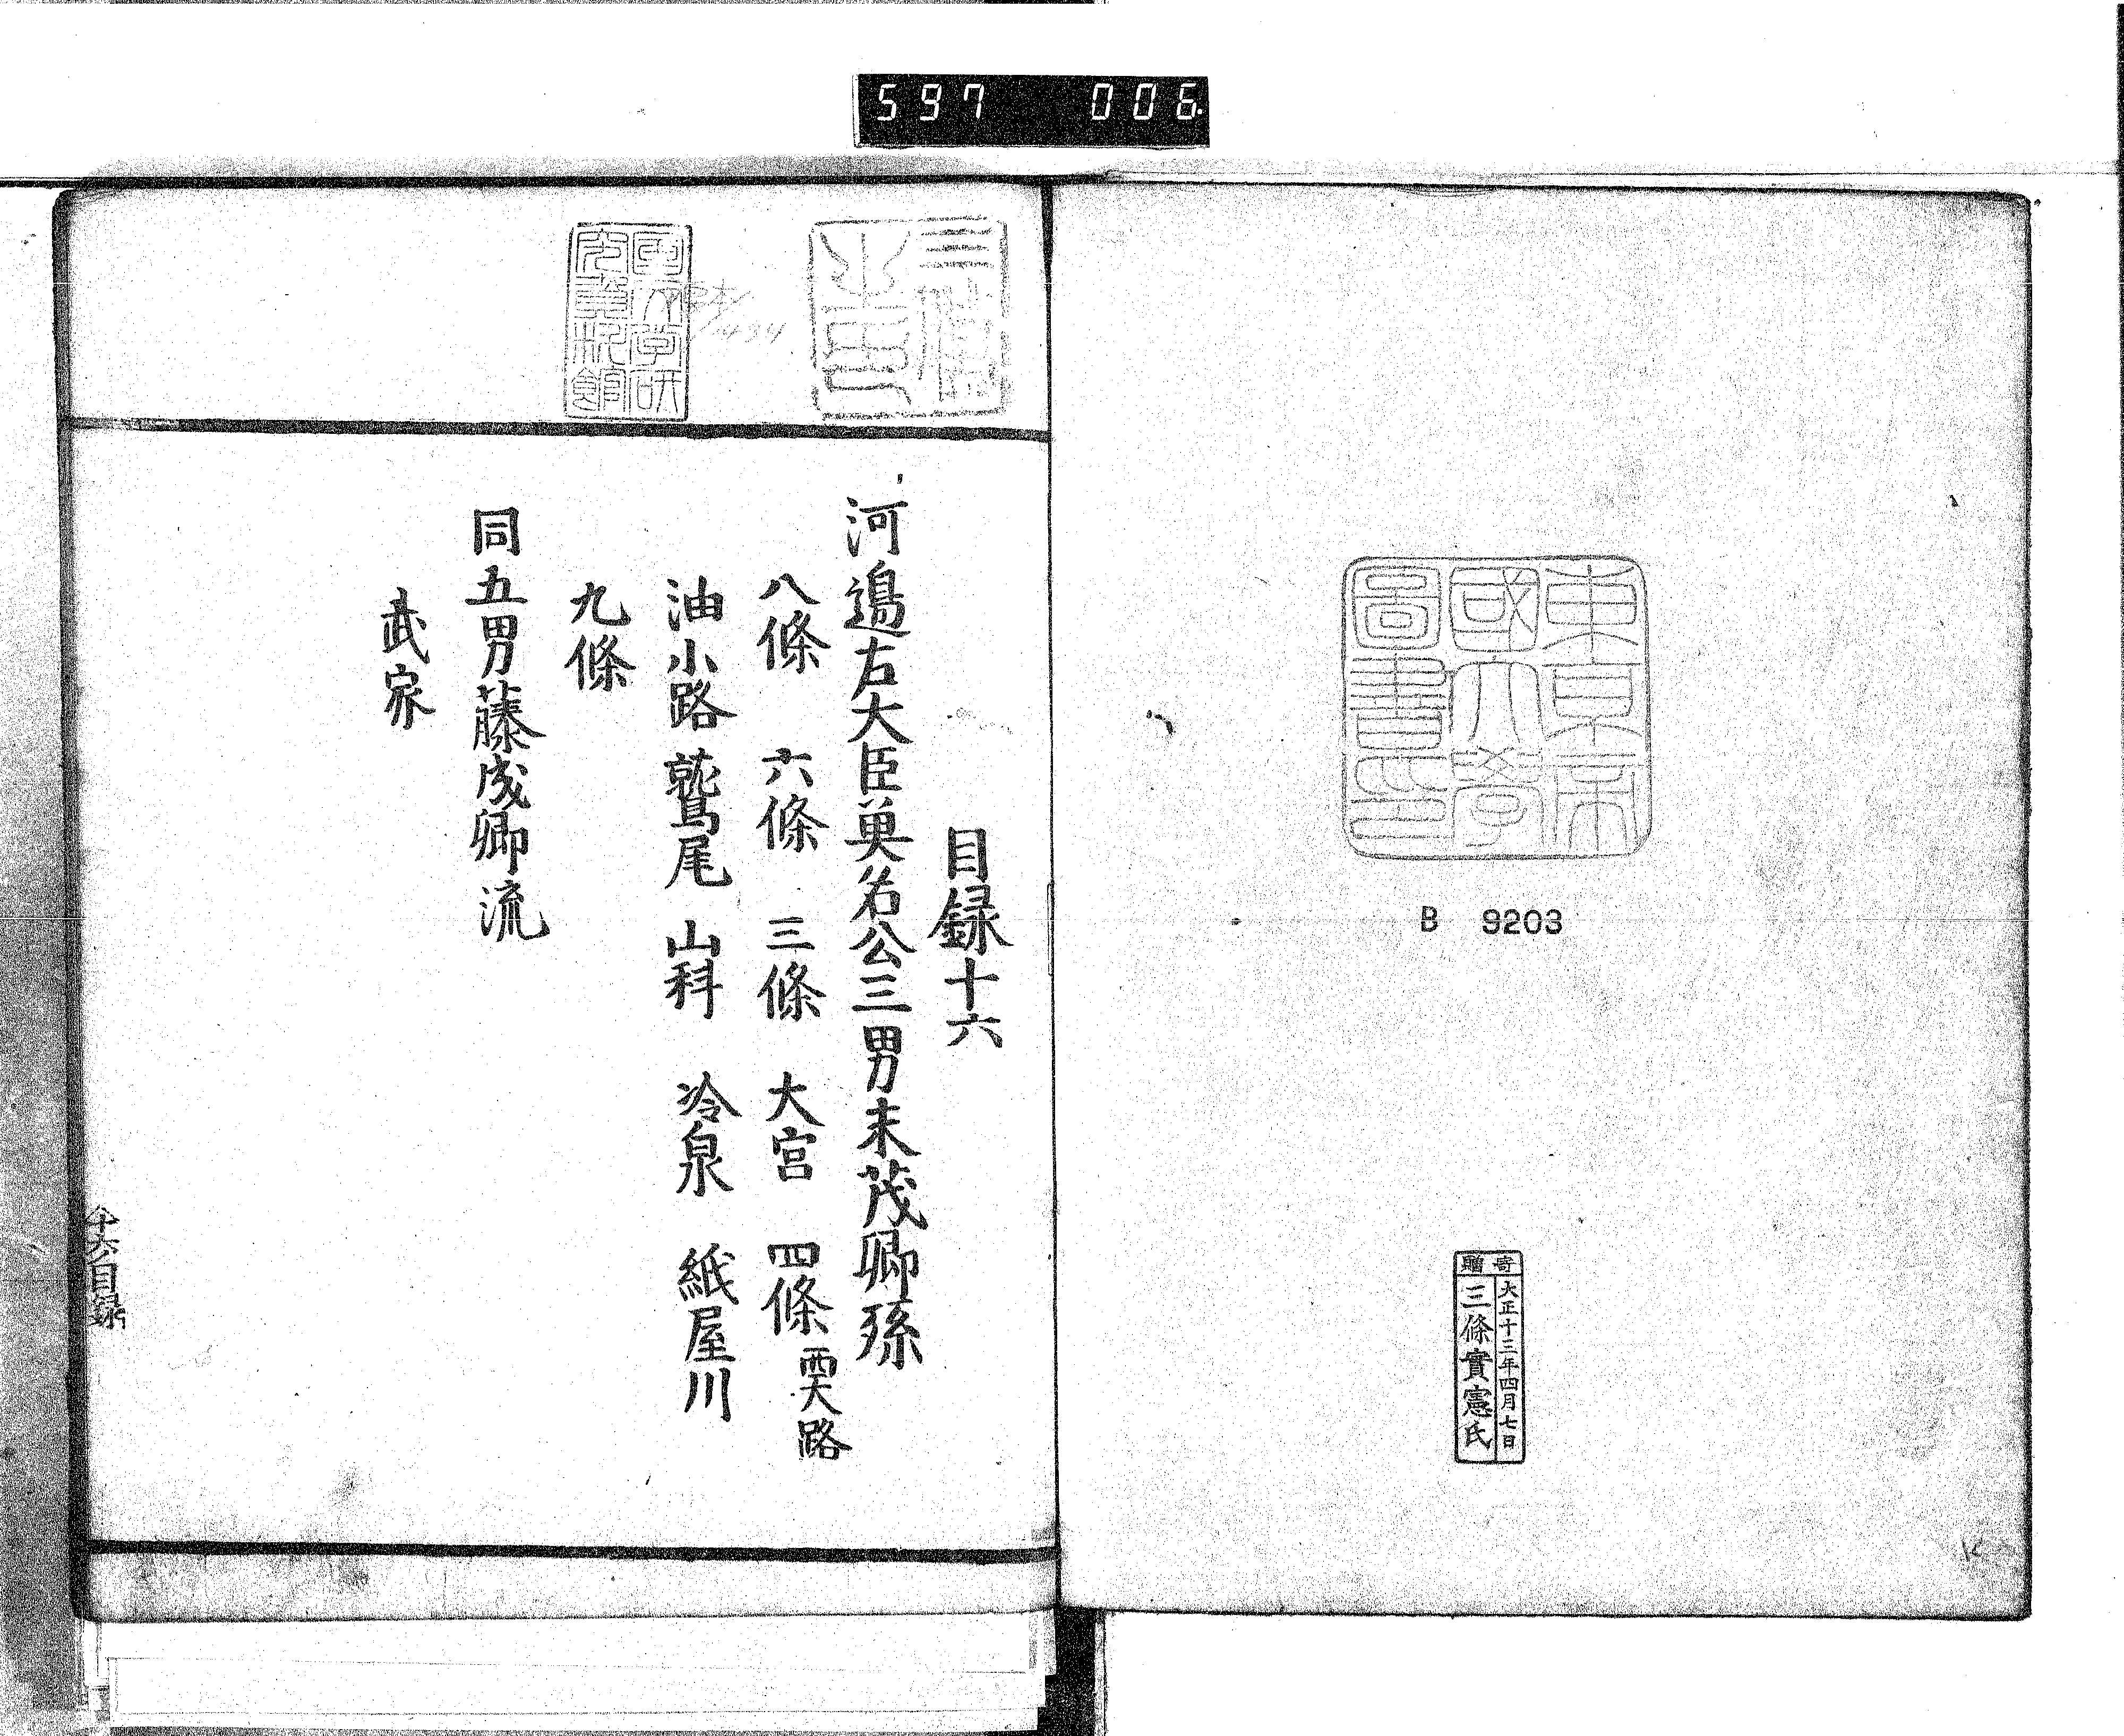 597 006
東京帝
國大學
圖書印
B 9203
寄贈
大正十二年四月七日
三條實憲氏
目録十六
河邉右大臣奠名公三男末茂卿孫
八條 六條 三條 大宮 四條 西大路
油小路 鷲尾 山科 冷泉 紙屋川
九條
同五男藤成卿流
武家
十六目録
国文学研
究資料館